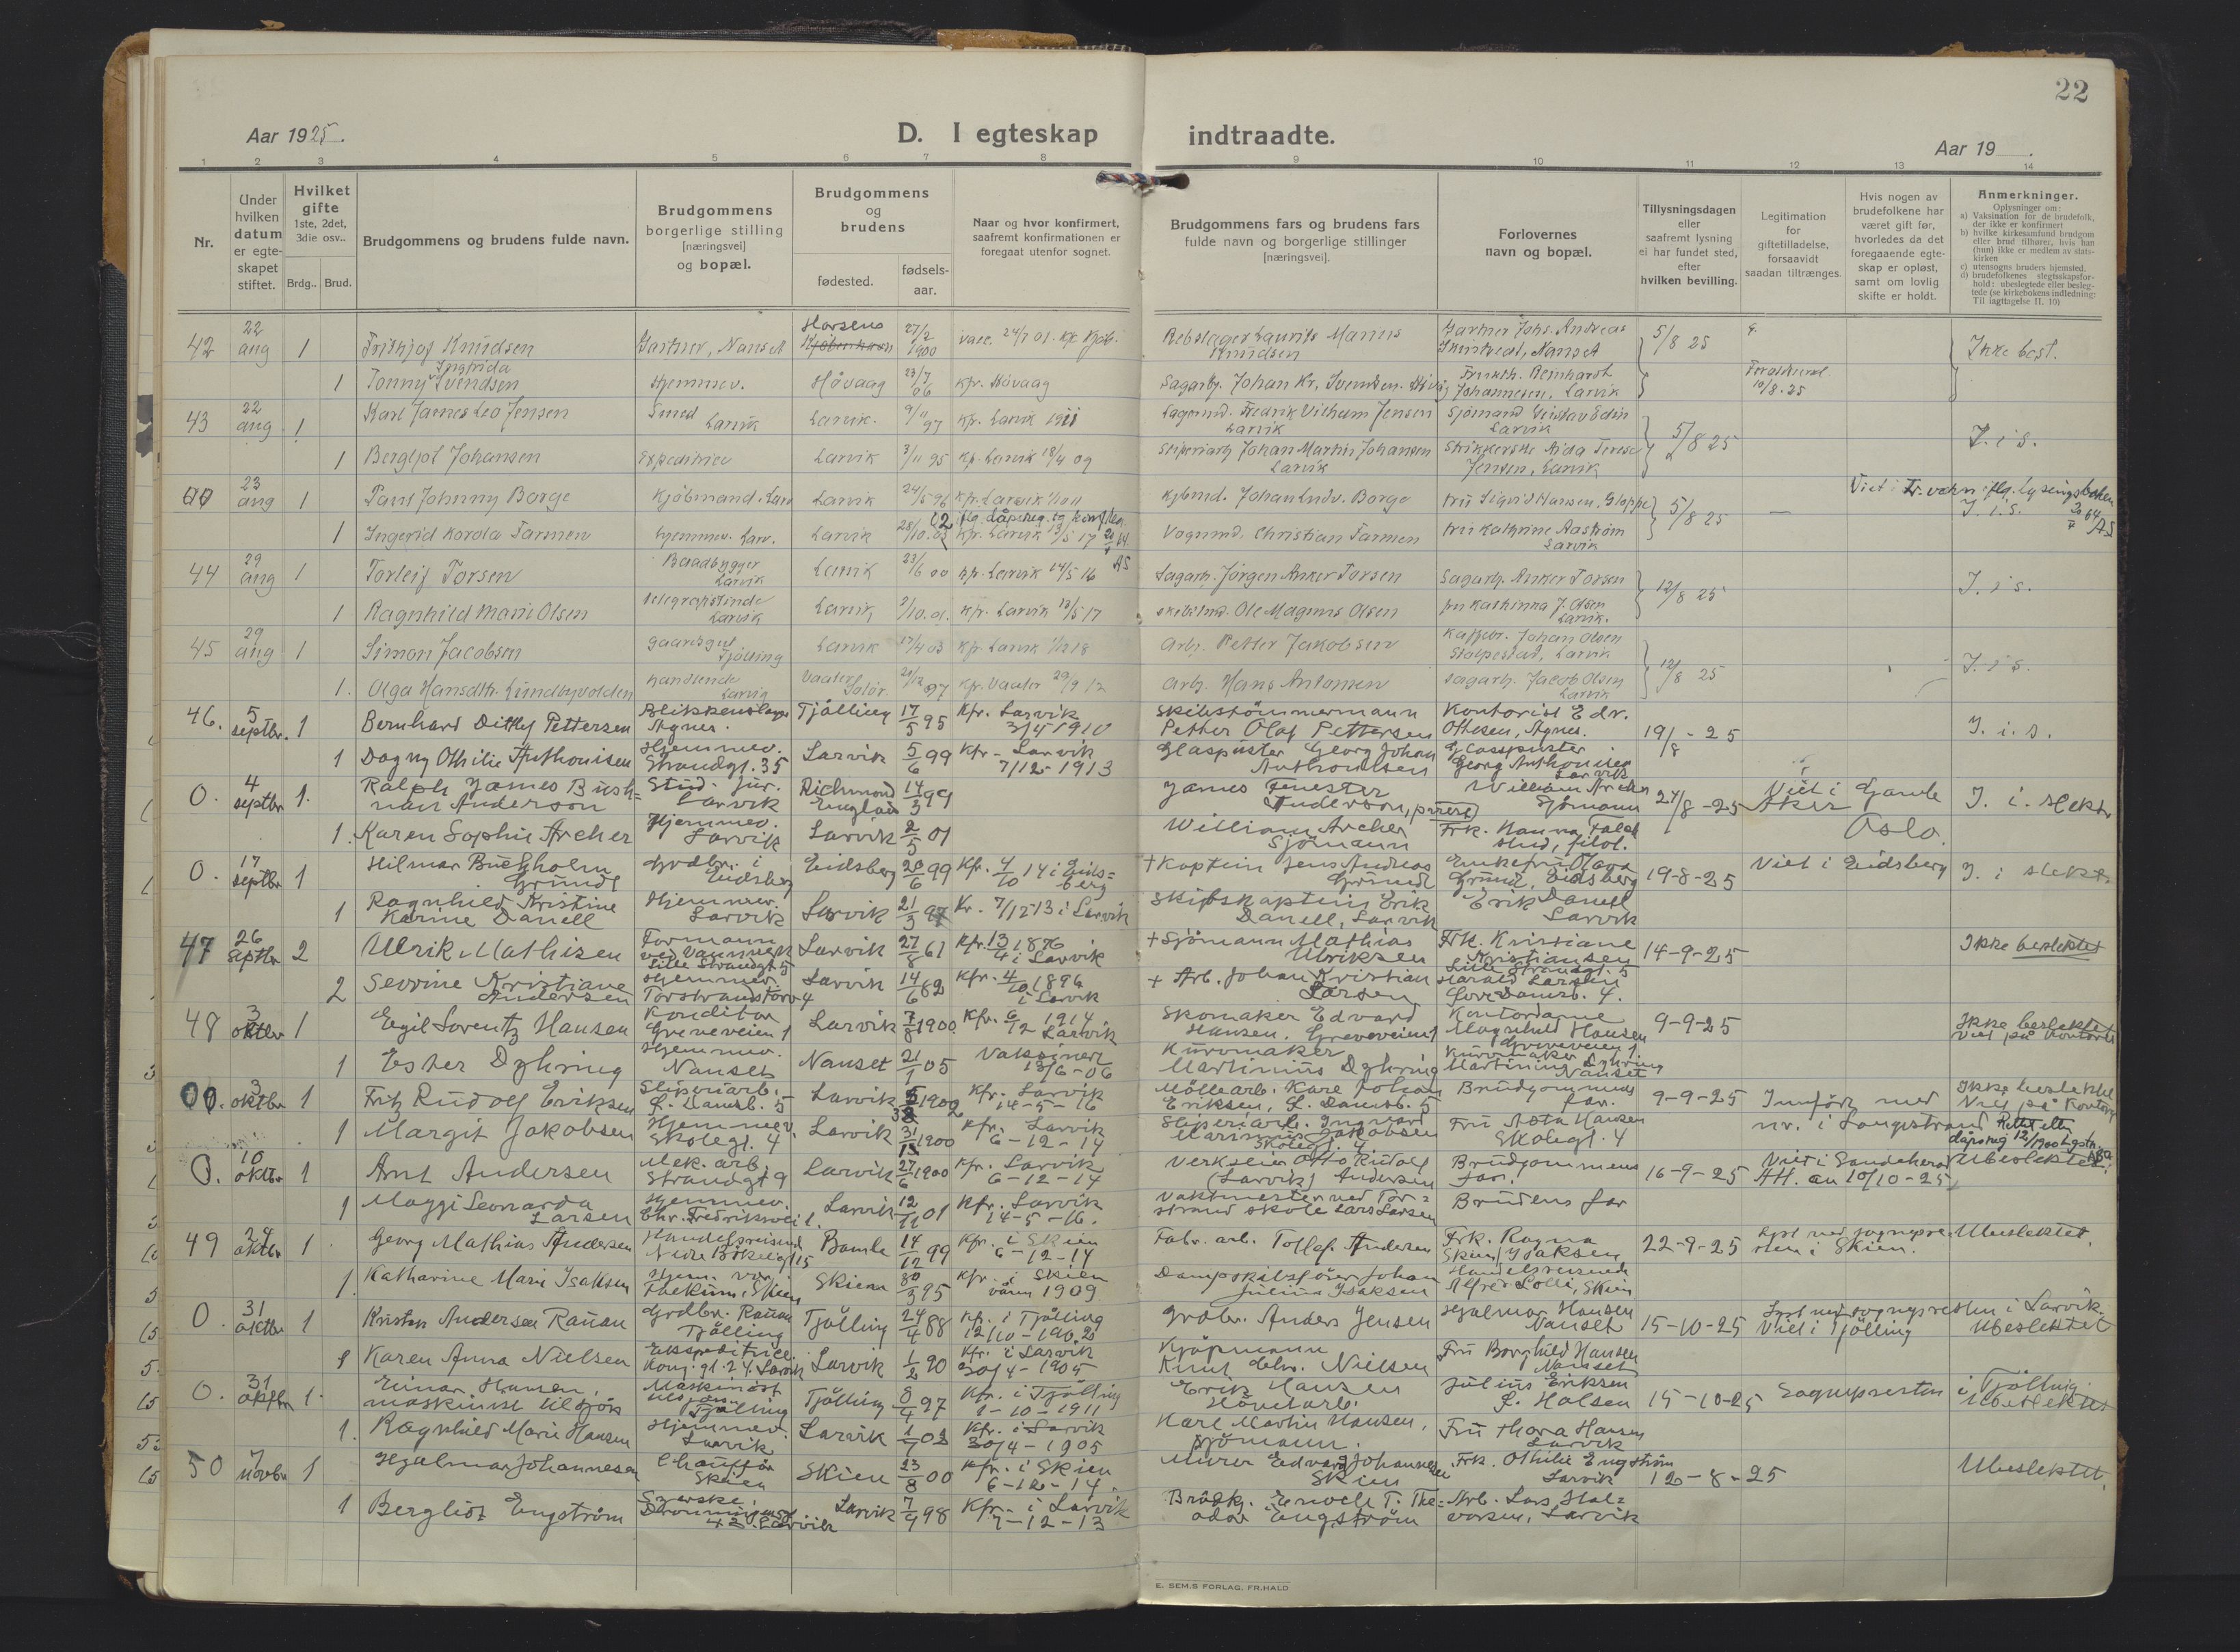 22
Aar 1925.
D. I egteskap indtraadte.
Aar 19 .
1 2 3 4 5 6 7 8 9 10 11 12 13 14
Nr.
Under hvilken datum er egte-skapet stiftet.
Hvilket gifte
1ste, 2det, 3die osv..
Brdg.. Brud.
Brudgommens og brudens fulde navn.
Brudgommens borgerlige stilling [næringsvei] og bopæl.
Brudgommens og brudens
fødested.
fødsels-aar.
Naar og hvor konfirmert, saafremt konfirmationen er foregaat utenfor sognet.
Brudgommens fars og brudens fars fulde navn og borgerlige stillinger [næringsvei].
Forlovernes navn og bopæl.
Tillysningsdagen eller saafremt lysning ei har fundet sted, efter hvilken bevilling.
Legitimation for giftetilladelse, forsaavidt saadan tiltrænges.
Hvis nogen av brudefolkene har været gift før, hvorledes da det foregaaende egte-skap er opløst, samt om lovlig skifte er holdt.
Anmerkninger.
Oplysninger om:
a) Vaksination for de brudefolk, der ikke er konfirmert
b) hvilke kirkesamfund brudgom eller brud tilhører, hvis han (hun) ikke er medlem av stats-kirken
c) utensogns bruders hjemsted.
d) brudefolkenes slegtsskapsfor-hold: ubeslegtede eller besleg-tede (se kirkebokens indledning: Til iagttagelse II. 10)
42 22 aug 1 Frithjof Knudsen Gartner, Nanset Horsens 27/2 1900 Rebslager Laurits Marius Knudsen Gartner Johs. Andreas Nanset 5/8 25 Ikke besl.
1 Tonny Ingfrida Svendsen Hjemmev. Høvaag 23/7 06 kfr. Høvaag Sagarb. Johan Kr. Svendsen Reinhardt Johannesen, Larvik 10/8-25
43 22 aug 1 Karl James Leo Jensen Smed Larvik Larvik. 9/11 97 kfr. Larvik 1911 Lagermd. Fredrik Vilhelm Jensen Larvik Sjømand Larvik 5/8 25 I. i s.
1 Bergljot Johansen Expeditrice Larvik 3/11 95 kfr. Larvik 18/4 09 Sliperiarb. Johan Martin Johansen Larvik Strikkerske Aida Terese Jensen, Larvik
00 23 aug 1 Paul Johnny Borge Kjøbmand, Larv. Larvik 24/5 96 kfr. Larvik Kjbmd. Johan Ludv. Borge Fru Sigrid Hansen, Gloppe 5/8 25 — Viet i Fr.værn iflg. lysingsboken I. i. s.
1 Ingerid Korola Tarmen hjemmev. Larv. Larvik 28/10 02 iflg. dåpsreg. og konf. kfr. Larvik 13/5 17 Vognmd. Christian Tarmen Fru Kathrine Aastrøm Larvik
44 29 aug 1 Torleif Torsen Baadbygger Larvik Larvik 23/6 00 kfr. Larvik 14/5 16 Sagarb. Jørgen Anker Torsen Sagarb. Anker Torsen 12/8 25 I. i s.
1 Ragnhild Marie Olsen Telegrafistinde Larvik Larvik 9/10. 01. kfr. Larvik 13/5 17 Ole Magnus Olsen Fru Kathinka J. Olsen Larvik.
45 29 aug 1 Simon Jacobsen Gaardsgut Tjølling Larvik 17/4 03 kfr. Larvik Arb. Petter Jakobsen Johan Olsen Larvik 12/8 25 I. i s.
1. Olga Hansdtr. Lundbyvolden Larvik Vaaler Solør. 20/12 97 kfr. Vaaler 29/9 12 Arb. Hans Antonsen Sagarb. Jacob Olsen Larvik
46. 5 septbr. 1 Bernhard Ditlef Pettersen Blikkenslager Agnes. Tjølling 17/5 95 Kfr. Larvik 3/4 1910 Skibstømmermann Petter Olaf Pettersen Kontorist Edv. Ottesen, Agnes. 19/8 - 25 I. i. s.
1 Dagny Othilie Anthonisen Hjemmev. Strandgt. 35 Larvik 5/6 99 Kfr. - Larvik 7/12 - 1913 Glaspuster Georg Johan Anthonisen Glasspuster Georg Anthonisen Larvik
0. 4 septbr 1. Ralph James Bushnan Anderson Stud. jur. Larvik Richmond England 14/3 99 James Anderson William Archer Sjømann 24/8 - 25 Viet i Gamle Aker Oslo. I. i. slekt
1. Karen Sophie Archer Hjemmev. Larvik Larvik 2/5 01 William Archer Sjømann Frk. Hanna Falck stud. filol.
0. 17 septbr 1 Hilmar Buchholm Gründt Grdbr. i Eidsberg Eidsberg 20/6 99 Kfr. 4/10 14 i Eidsberg + Kaptein Jens Andreas Gründt Enkefru Olava Gründt, Eidsberg 19-8-25 Viet i Eidsberg I. i slekt.
1 Ragnhild Kristine Karine Danell Hjemmev. Larvik Larvik 21/3 97 Kr. 7/12 13 i Larvik Skibskaptein Erik Danell, Larvik Erik Danell Larvik
47 26 septbr 2 Ulrik Mathisen Formann ved Vannverk Lille Strandgt 5 Larvik 27/8 61 Kfr. 13/4 1876 i Larvik + Sjømann Mathias Ulriksen Frk. Kristiane Kristiansen Lille Strandgt. 5 14-9-25 Ikke beslektet
2 Sevrine Kristiane Andersen Hjemmev. Torstrandtorv 4 Larvik 14/6 82 Kfr. 4/10 1896 i Larvik + Arb. Johan Kristian Larsen Harald Larsen
48 3 oktbr 1 Egil Lorentz Hansen Konditor Greveveien 1 Larvik 7/8 1900 Kfr. 6/12 1914 Larvik Skomaker Edvard Hansen, Greveveien 1 Kontordame Magnhild Hansen Greveveien 1. 9-9-25 Ikke beslektet Viet på kontoret
1 Esther Dyhring Hjemmev. Nanset Nanset 21/1 05 Vaksinert 13/6 - 06 Kurvmaker Martinius Dyhring Kurvmaker Martinius Dyhring Nanset
00. 3 oktbr 1 Fritz Rudolf Eriksen Sliperiarb. L. Damsb. 5 Larvik 1900 Kfr. Larvik 14-5-16 Møllearb. Karl Johan Eriksen, L. Damsb. 5 Brudgommens far. 9-9-25 Innført med nr. i Langestrand Ikke beslektet Viet på kontoret
1 Margit Jakobsen Hjemmev. Skolegt. 4 Larvik 1900 Kfr. Larvik 6-12-14 Sliperiarb. Ingvard Marinius Jakobsen Skolegt. 4 Fru Asta Hansen Skolegt. 4 Rettet etter dåpsreg
0. 10 oktbr 1 Arnt Andersen Mek. arb. Strandgt 9 Larvik 27/6 1900 Kfr. Larvik 6-12-14 Verkseier Otto Rudolf (Larvik) Andersen Brudgommens far. 16-9-25 Viet i Sandeherad Att. av 10/10-25 Ubeslektet
1 Maggi Leonarda Larsen Hjemmev. Chr. Fredriksvei 1. Larvik 12/11 01 Kfr. Larvik 14-5-16. Vaktmester ved Torstrand skole Lars Larsen Brudens far
49 24 oktbr 1 Georg Mathias Andersen Handelsreisend Nedre Bøkeligt 15 Bamle 14/12 99 Kfr. i Skien 6-12-14 Fabr. arb. Tollef Andersen Frk. Ragna Isaksen Skien 22-9-25 Lyst ved sognepresten i Skien. Ubeslektet.
1. Katharine Marie Isaksen Hjem. Skien Skien 3 95 Kfr. i Skien våren 1909 Dampskibsfører Johan Julius Isaksen Handelsreisende Alfred Lolli, Skien
0. 31 oktbr 1 Kristen Andersen Rauan Grdbr. Rauan Tjølling Tjølling 24/4 88 Kfr. i Tjølling 12/10 - 1902 Grdbr. Anders Jensen Hjalmar Hansen Nanset 15-10-25 Lyst ved sognepresten i Larvik. Viet i Tjølling Ubeslektet
1 Karen Anna Nielsen Ekspeditrice. Kong. gt. 24. Larvik Larvik 1/2 90 Kfr. i Larvik 30/4 - 1905 Kjøpmann Nielsen Fru Borghild Hansen Nanset
0. 31 oktbr 1. Einar Hansen, maskinist til sjøs Maskinist til sjøs Tjølling Tjølling 8/4 97 Kfr. i Tjølling 1-10-1911 Erik Hansen Høvelarb. Julius Eriksen Ø. Halsen 15-10-25 Sognepresten i Tjølling. Ubeslektet
1. Ragnhild Marie Hansen Hjemmev. Larvik Larvik Kfr. i Larvik 30/4 - 1905 Karl Martin Hansen, sjømann. Fru Thora Hansen Larvik
50 7 novbr 1 Hjalmar Johannesen Chauffør Skien Skien 23/8 00 Kfr. i Skien 6-12-14. Murer Edvard Johannesen Skien Frk. Othilie Engström Larvik 12-8-25 Ubeslektet.
1 Bergliot Engström Syerske Dronningensgt 43 Larvik Larvik 7/9 98 Kfr. i Larvik 7-12-13 Brødkj. Enoch T. Theodor Engström Arb. Lars Halvorsen, Larvik
E. SEM.S FORLAG, FR.HALD